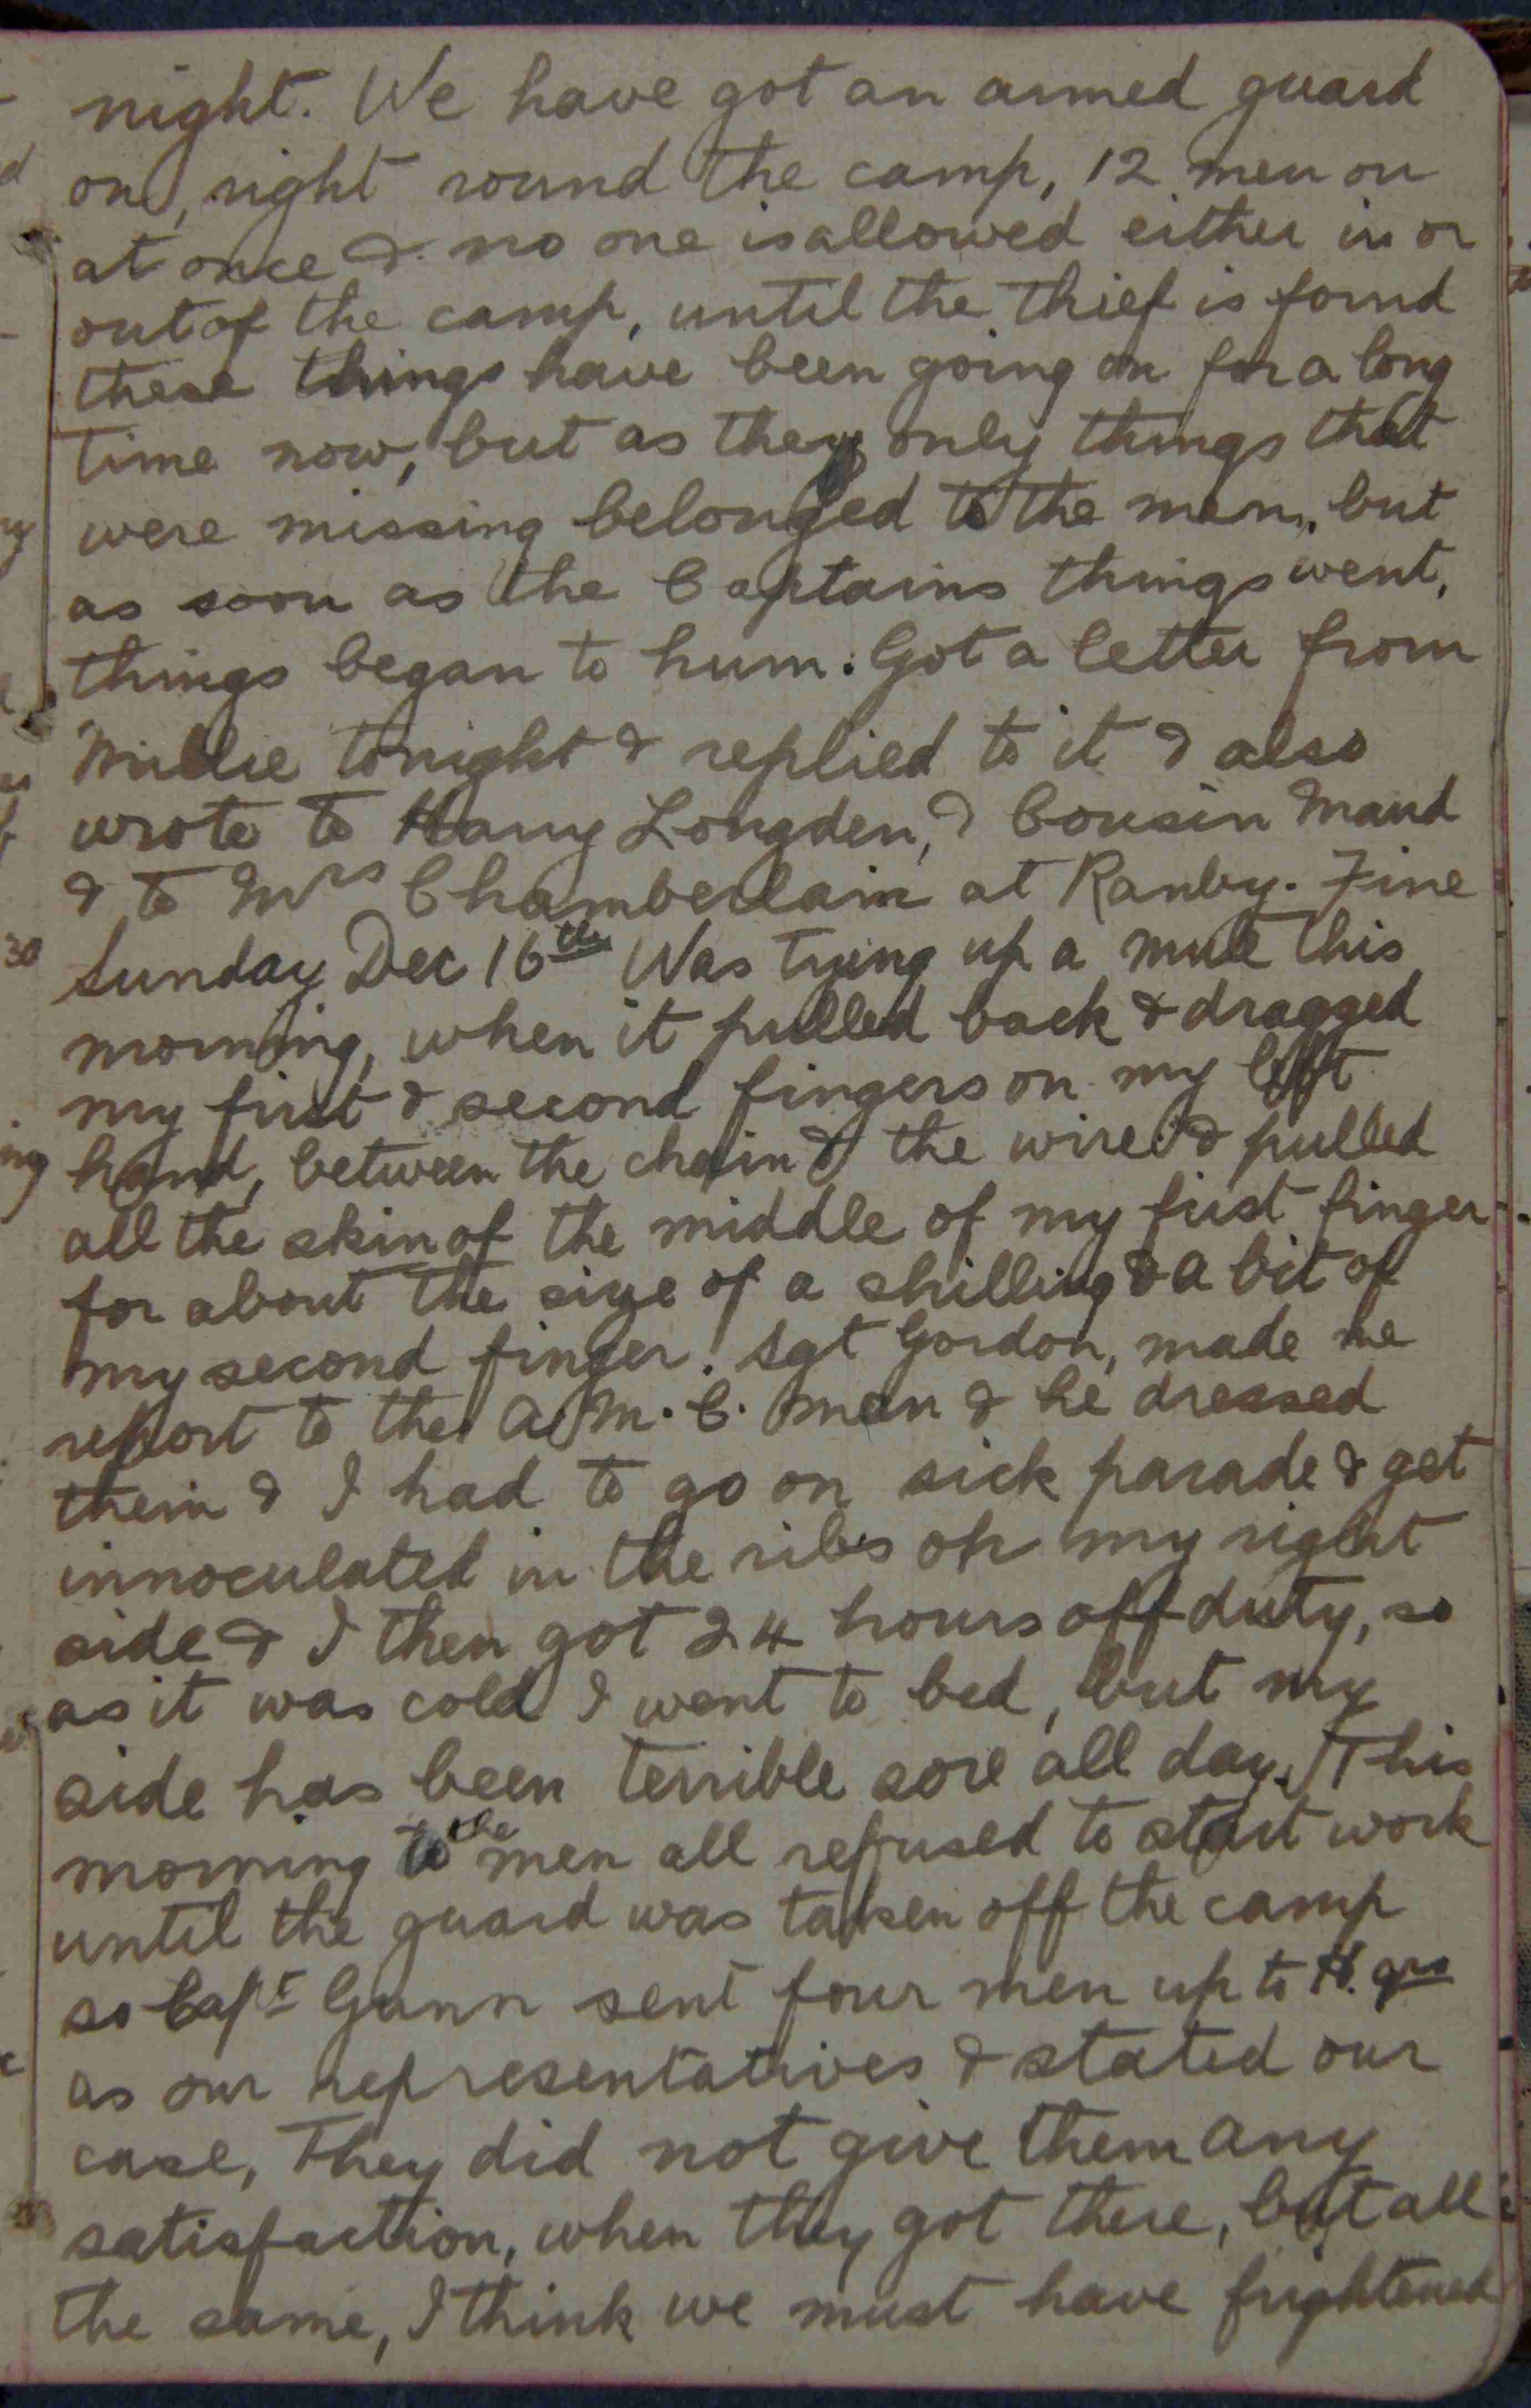 night. We have got an armed guard
on, right round the camp, 12 men on
at once & no one is allowed either in or
out of the camp, until the thief is found
these things have been going on for a long
time now, but as they only things that
were missing belonged to the men, but
as soon as the Captains things went,
things began to hum. Got a letter from
Millie tonight & replied to it & also
wrote to Harry Longden, & Cousin Maud
& to Mrs Chamberlain at Ranby. Fine
Sunday Dec 16th Was tying up a mule this
morning, when it pulled back & dragged
my first & second fingers on my left
hand, between the chain & the wire & pulled
all the skin of the middle of my fist finger
for about the size of a shilling & a bit of
my second finger. Sgt Gordon, made me
report to the A.M.C. man & he dressed
them & I had to go on sick parade & get
innoculated in the ribs on my right
side & I then got 24 hours off duty, so
as it was cold I went to bed, but my
side has been terrible sore all day. This
morning the men all refused to start work
until the guard was taken off the camp
so Capt Gunn sent four men up to H. qrs
as our representatives & stated our
case, They did not give them any
satisfaction, when they got there, but all
the same, I think we must have frightened